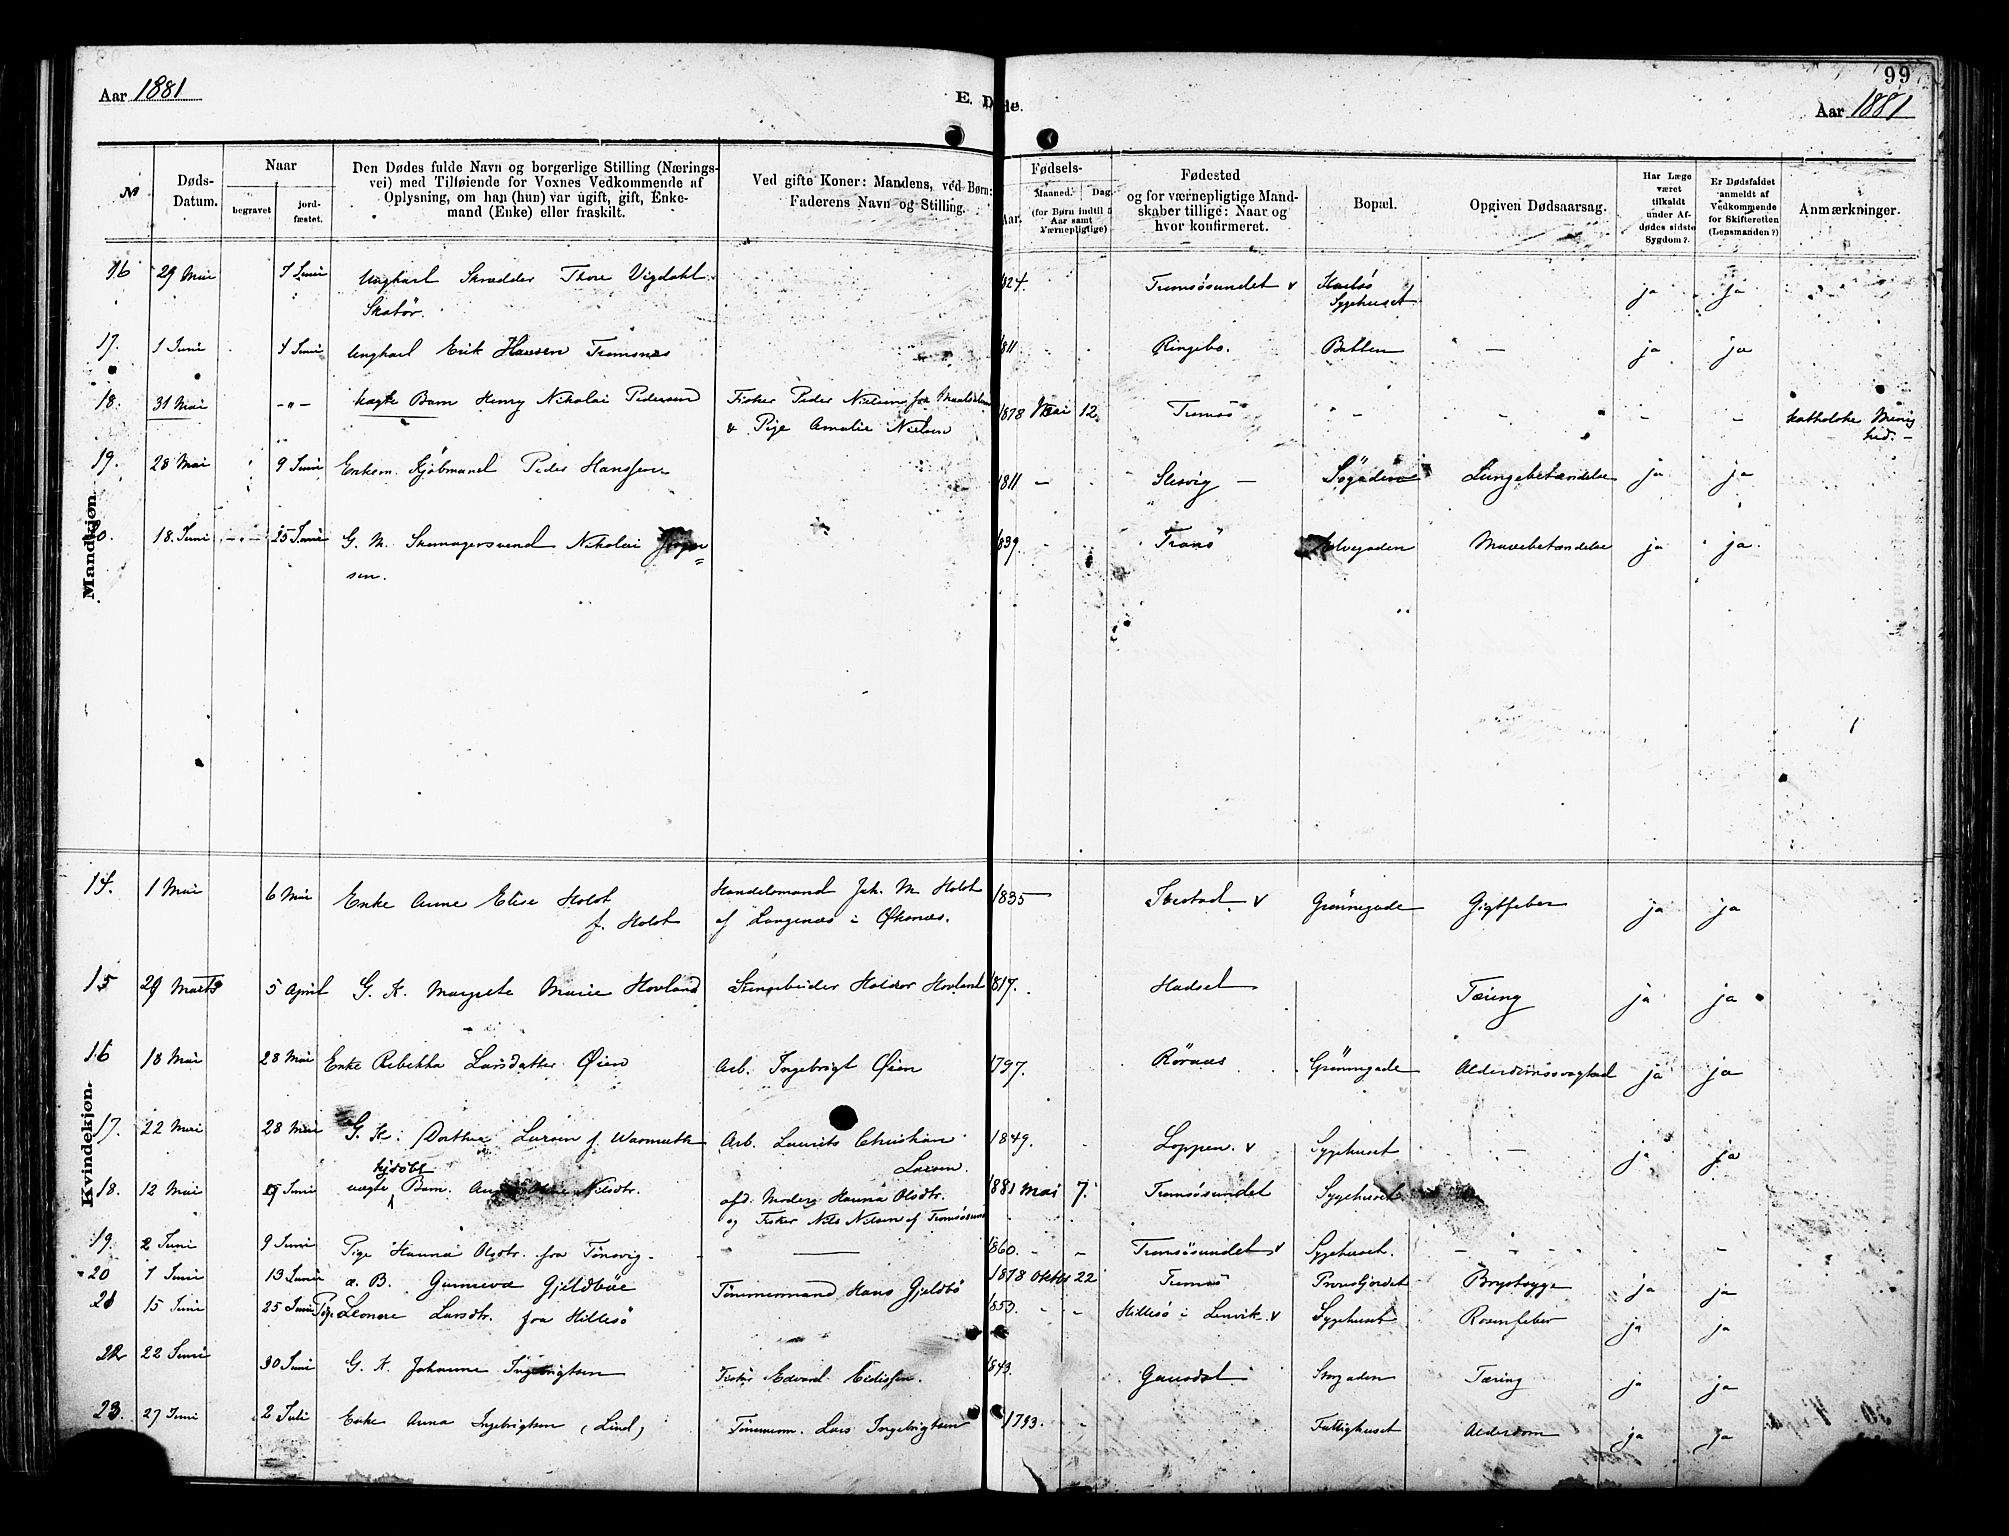 99
Aar 1881
E. Døde.
Aar 1881
№
Døds-
Datum.
Naar
begravet
jord-
fæstet.
Den Dødes fulde Navn og borgerlige Stilling (Nærings-
vei) med Tilføiende for Voxnes Vedkommende af
Oplysning, om han (hun) var ugift, gift, Enke-
mand (Enke) eller fraskilt.
Ved gifte Koner: Mandens, ved Børn:
Faderens Navn og Stilling.
Fødsels-
Aar.
Maaned.
Dag.
(for Børn indtil 5
Aar samt
Værnepligtige)
Fødested
og for værnepligtige Mand-
skaber tillige: Naar og
hvor konfirmeret.
Bopæl.
Opgiven Dødsaarsag.
Har Læge
været
tilkaldt
under Af-
dødes sidste
Sygdom?
Er Dødsfaldet
anmeldt af
Vedkommende
for Skifteretten
(Lensmanden?)
Anmærkninger.
Mandkjøn.
16 29 Mai Ungkarl Skrædder Thore Vigdahl 1824. Tromsøsundet v Karlsö ja ja
Skatør. Sygehuset
17. 1 Juni Ungkarl Erik Hansen Tromsnæs 1811 Ringebo. Bakken — ja ja
18. 31 Mai -"- uægte Barn Henry Nikolai Pedersen Fisker Peder Nielsen fra Maalselven 1878 Mai 12 Tromsö - - - - katholske Menig
& Pige Amalie Nielsen hed. -
19. 28 Mai 9 Juni Enkem. Kjöbmand Peder Hanssen 1811 — Slesvig — Søgaden Lungebetændelse ja ja
20. 18. Juni 25 Juni G. M. Skomagersvend Nikolai Jörgen= 1839. Tranö Mavebetændelse ja ja.
sen.
Kvindekjøn.
14. 1 Mai 6 Mai Enke Anne Elise Holst Handelsmand Joh. M. Holst 1835 Ibestad v Grønnegade Gigtfeber ja ja
f. Holst af Langenæs i Øksnæs.
15 29 Marts 5 April G. K. Margrete Marie Hovland Stenarbeider Haldor Hovland 1817. Hadsel Tæring ja ja
16 18 Mai 28 Mai Enke Rebekka Larsdatter Øien Arb. Ingebrigt Øien 1797. Röraas Grönnegade Alderdomssvaghed ja ja
17. 22 Mai 28 Mai G. K: Dorthea Larsen f. Warmuth Arb. Laurits Christian 1849. Loppen. v Sygehuset - ja ja
Larsen.
hjdöbt
18. 12 Mai 9 Juni uægte Barn. Nilsdtr. afd. Moder Hanna Olsdtr. 1881 Mai 7. Tromsösundet Sygehuset
og Fisker Nils Nilsen af Tromsösund
19. 2 Juni 9 Juni Pige Hanna Olsdtr. fra Tönsvig - — 1860. - - Tromsösundet v Sygehuset. - - - -
20 7 Juni 13 Juni æ. B. Gunneva Gjeldböe Tömmermand Hans Gjeldbö 1878 Oktbr 22 Tromsö Brystsyge ja ja
21 15 Juni 25 Juni Pige Leonore Larsdtr. fra Hillesö 1853. - - Hillesö i Lenvik. v Sygehuset Rosenfeber ja ja
22 22 Juni 30 Juni G. K. Johanne Ingebrigtsen Fisker Edvard Eidissen. 1843. Gausdal Storgaden Tæring ja ja
23. 27 Juni 2 Juli Enke Anna Ingebrigtsen (Lind) Tömmerm. Lars Ingebrigtsen 1793. - Fattighuset Alderdom ja ja